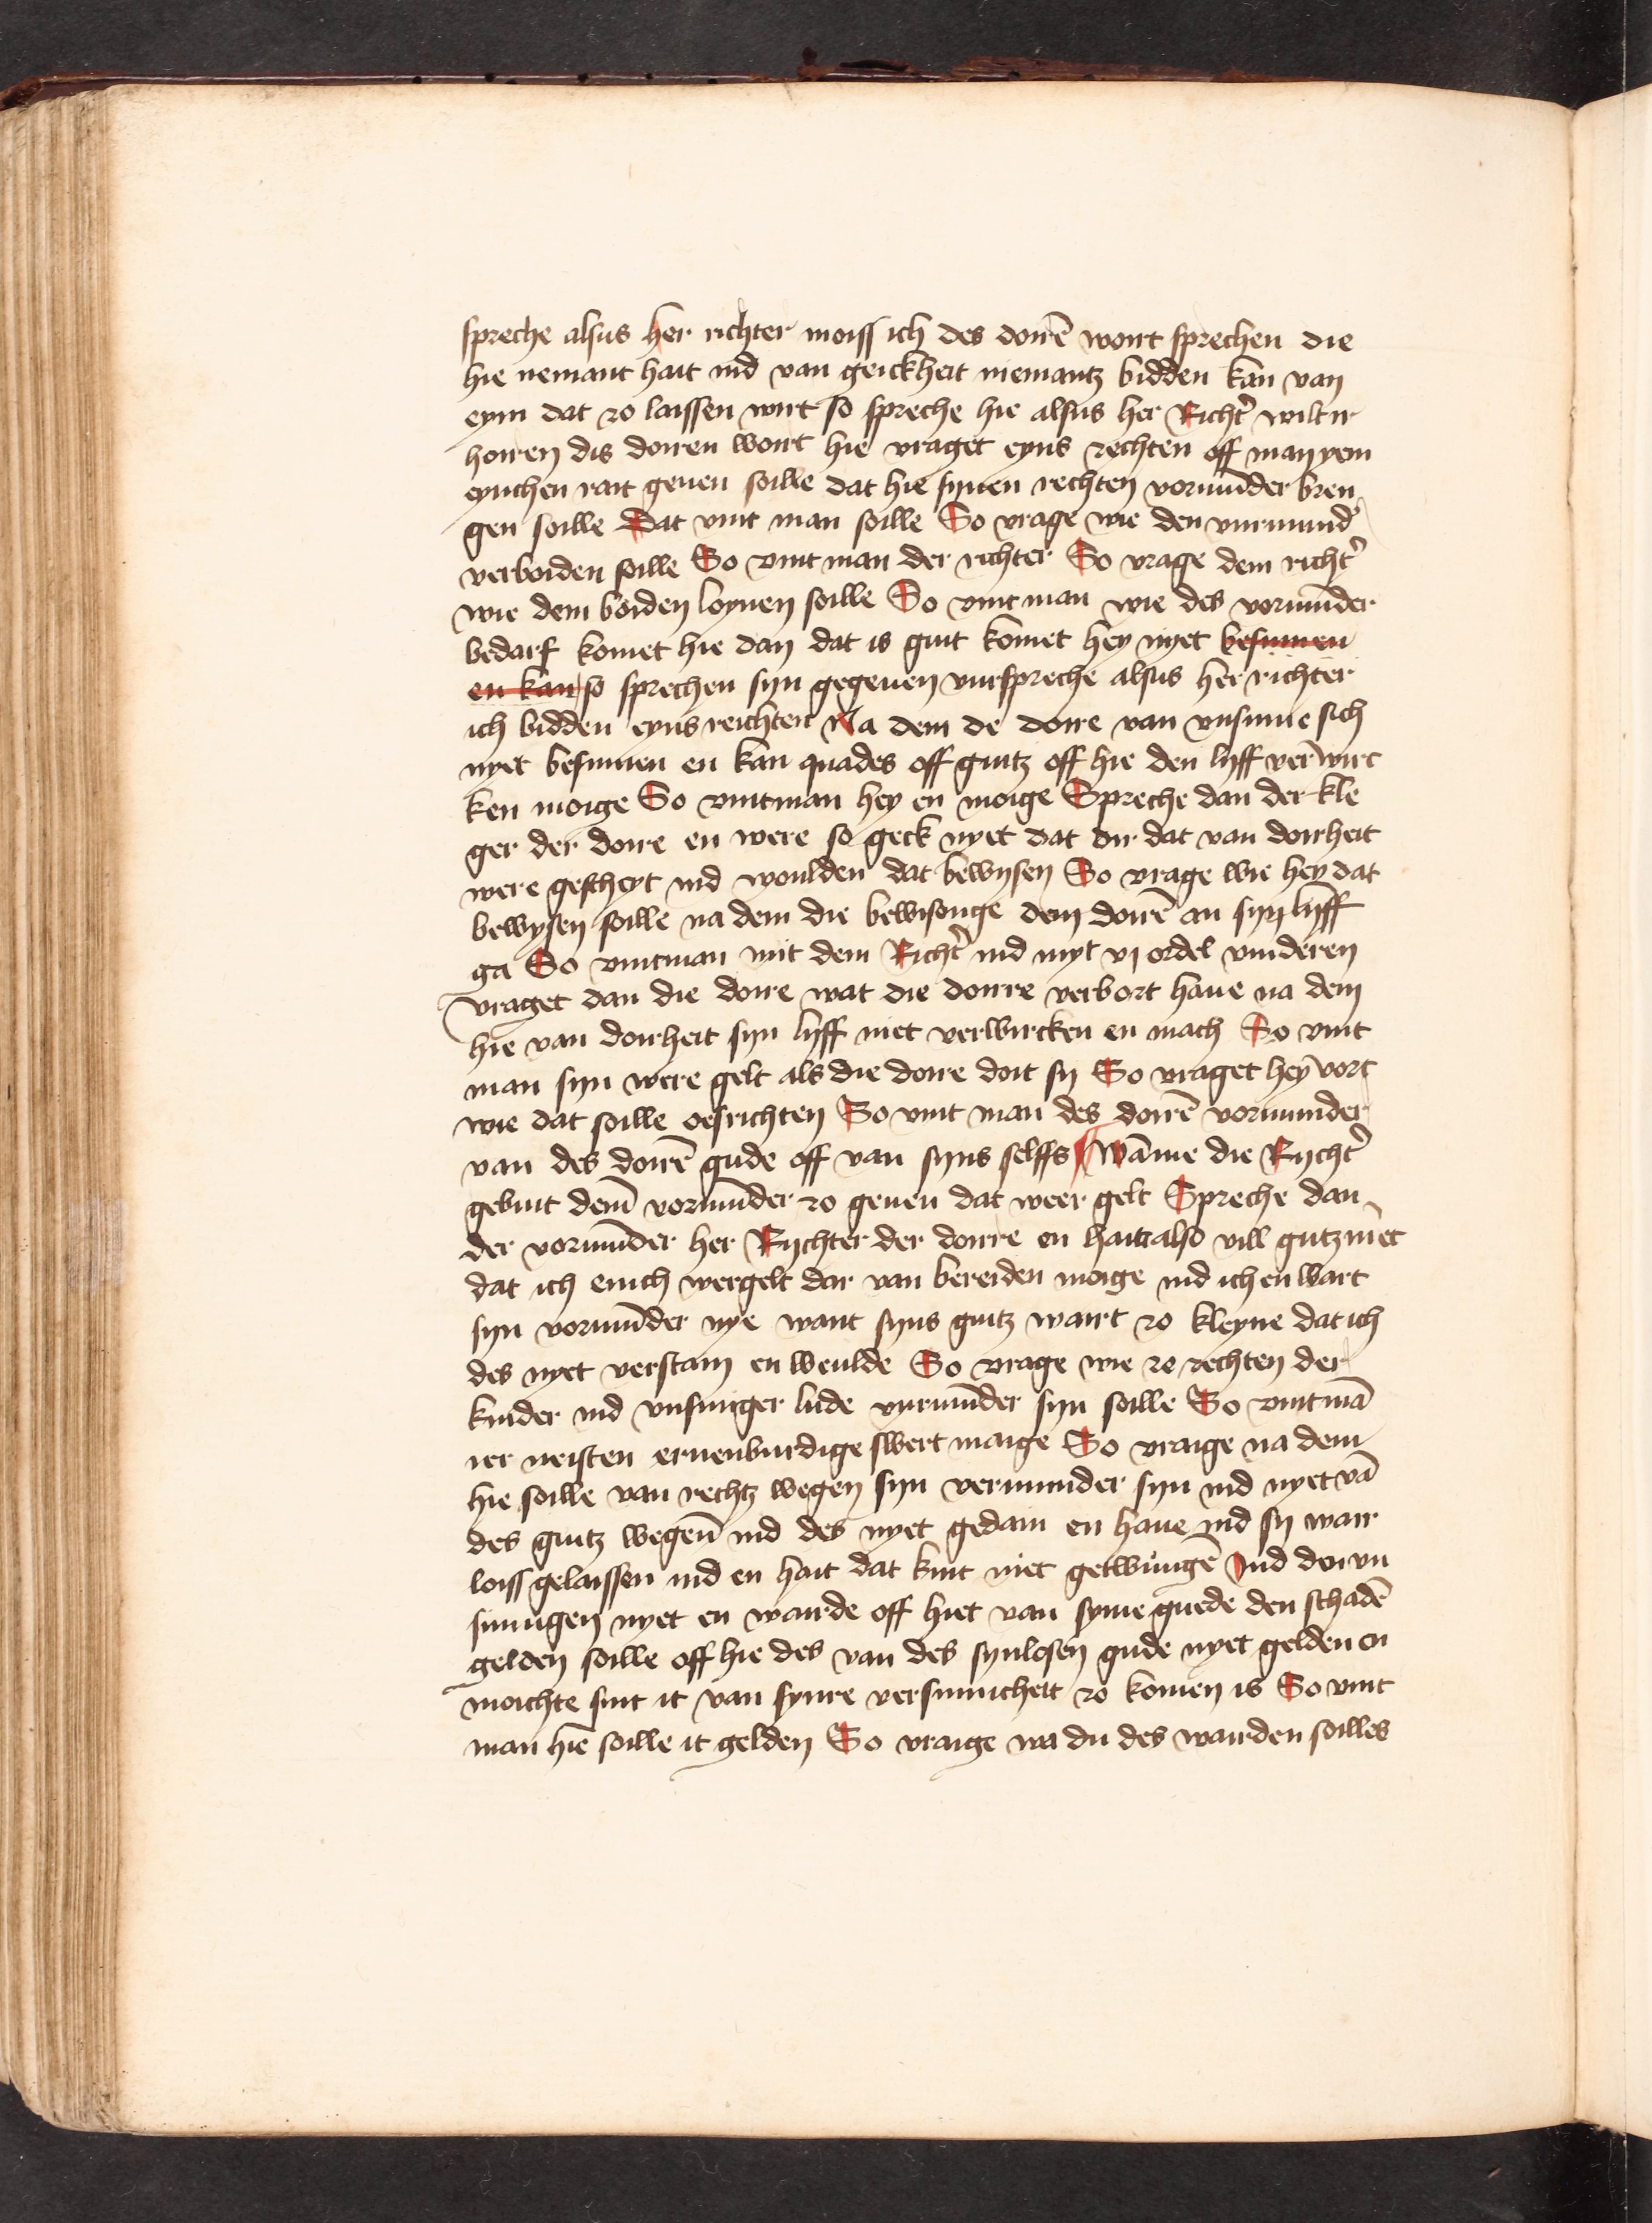 spreche alsus her richter moiss ich des dorrē wort sprechen die
hie nemant hait ind van geickheit niemantz bidden kan van
eym dat zo laissen wirt so spreche hie alsus her Richt' wilt ir
horren dis dorren wort hie vraget eyns rechten off man yem
eynchen rait geuen soille dat hie synen rechten vormūder bren
gen soille Dat vint man soille So vrage wie den vurmund'
verboiden soille So vint man der richter So vrage dem richt'
wie dem boiden loynen soille So vint man wie des vormūder
bedarf komet hie dan dat is guit komet hey nyet besinnen
en kan so sprechen syn gegeuen vurspreche alsus her richter
ich bidden eyns reichten Na dem de dorre van vnsinne sich
nyet besinnen en kan quades off guitz off hie den lyff verwirc
ken moige So vintman hey en moige Spreche dan der kle
ger der dorre en were so geck nyet dat dir dat van dorheit
were gescheyt ind woulden dat bewysen So vrage wie hey dat
bewysen soille na dem die bewisonge dem dorrē an syn lyff
ga So vintman mit dem Richt' ind myt vj ordel vinderen
vraget dan die dorre wat die dorre verbort haue na dem
hie van dorheit syn lyff niet verwircken en mach So vint
man syn were gelt als die dorre doit sy So vraget hey vort
wie dat soille oesrichten So vint man des dorrē vormunder
van des dorrē gude off van syns selffs Wānne die Rycht'
gebuit dem vormūder zo geuen dat weer gelt Spreche dan
der vormūder her Rychter der dorre en hait also vill gutz niet
dat ich euch wergelt dar van bereiden moige ind ich en wart
syn vormūder nye want syns guitz wairt zo kleyne dat ich
des nyet verstain en weulde So vrage wie zo rechten der
kinder ind vnsinniger lude vurmūder syn soille So vintmā
ier neisten eruenburdige swert maige So vraige na dem
hie soille van rechtz wegen syn vermunder syn ind nyet vā
des guitz wegen ind des nyet gedain en haue ind sy wair
loiss gelaissen ind en hait dat kint niet getwūngē Ind den vn
sinnigen nyet en wairde off hiet van syme guede den schadē
gelden soille off hie des van des synlosen gude nyet gelden en
moichte sint it van synre versumicheit zo komen is So vint
man hie soille it gelden So vraige wa du des wairden soilles